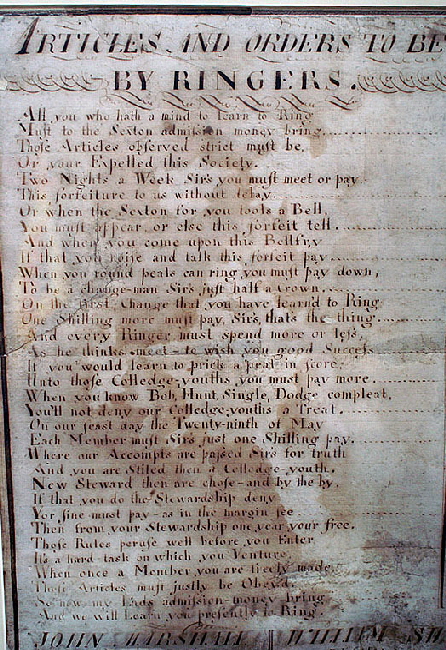 ARTICLES AND ORDERS TO BE
BY RINGERS.
All you who hath a mind to learn to Ring
Must to the Sexton admission money bring.
Those Articles observed strict must be,
Or your Expelled this Society.
Two Nights a Week Sir's you must meet or pay
This forfeiture to us without delay.
Or when the Sexton for you tools a Bell,
You must appear or else this forfeit tell.
And when you come upon this Bellfry
If that you noise and talk this forfeit pay
When you round peals can ring you must pay down,
To be a change-man Sir's just half a Crown.
On the first Change that you have learn'd to Ring
One Shilling more must pay, Sir's, that's the thing.
And every Ringer must spend more or less,
As he thinks meet - to wish you good Success
If you would learn to prick a peal in score,
Unto those Colledge-youths, you must pay more.
When you know Bob, Hunt, Single, Dodge compleat,
You'll not deny our Colledge-youths a Treat.
On our feast day the Twenty-ninth of May
Each Member must Sir's just one Shilling pay.
Where our Accompts are passed Sir's for truth
And you are Stiled then a Colledge-youth.
New Steward then are chose - and by the by
If that you do the Stewardship deny
Yor fine must pay - as in the margin see
Then from your Stewardship one year your free.
Those Rules peruse well before you Enter
It's a hard task on which you Venture.
When once a Member you are freely made
Those Articles must justly be Obey'd.
So now my Lads admission money bring
And we will Learn you presently to Ring
JOHN MARSHALL WILLIAM